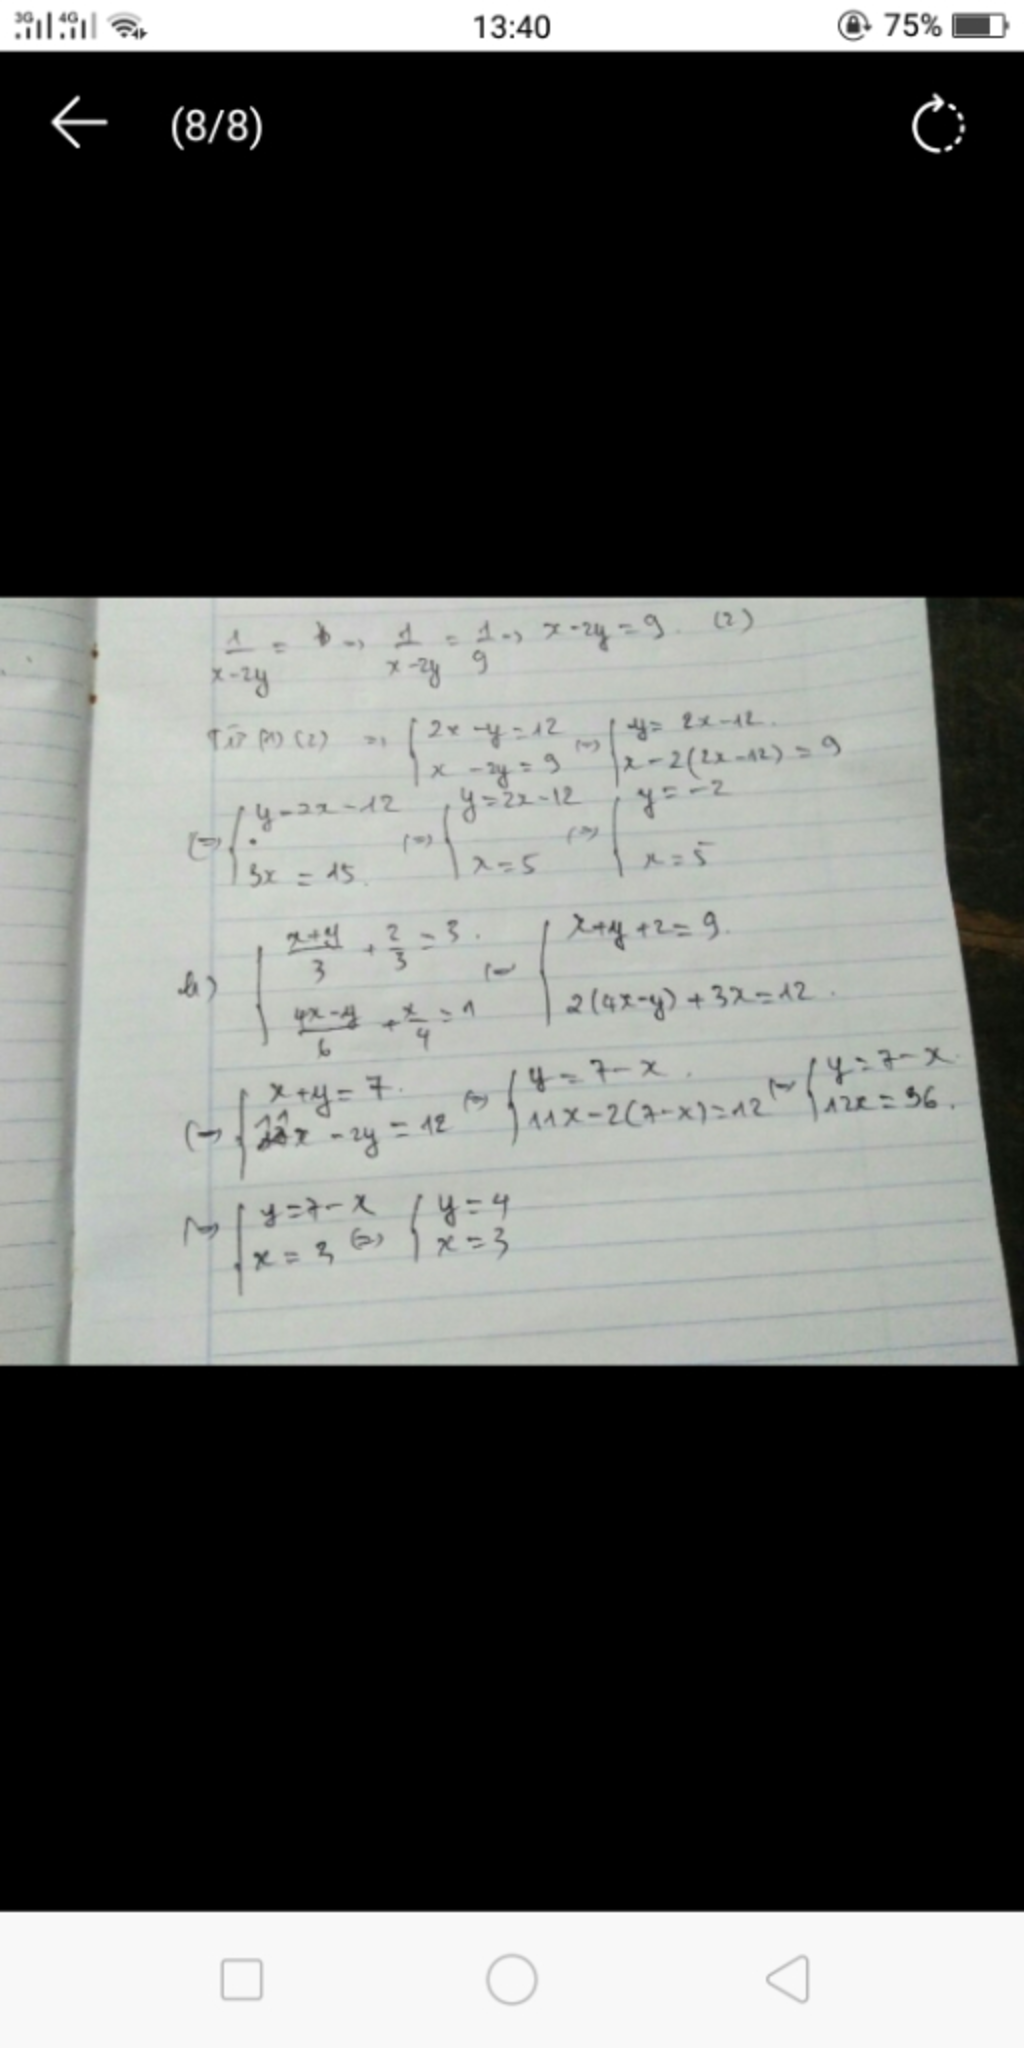 3G 4G 13:40 75%
(8/8)
1/(x-2y) = b -> 1/(x-2y) = 1/9 -> x-2y = 9. (2)
Từ (1) (2) => { 2x-y = 12 ; x-2y = 9 (=) { y = 2x-12. ; x-2(2x-12) = 9
(=) { y = 2x-12 ; 3x = 15. (=) { y = 2x-12 ; x = 5 (=) { y = -2 ; x = 5
b) { (x+y)/3 + 2/3 = 3. ; (4x-y)/6 + x/4 = 1 (=) { x+y+2 = 9. ; 2(4x-y)+3x = 12.
(=) { x+y = 7. ; 11x-2y = 12 (=) { y = 7-x. ; 11x-2(7-x) = 12 (=) { y = 7-x. ; 12x = 36.
(=) { y = 7-x ; x = 3 (=) { y = 4 ; x = 3